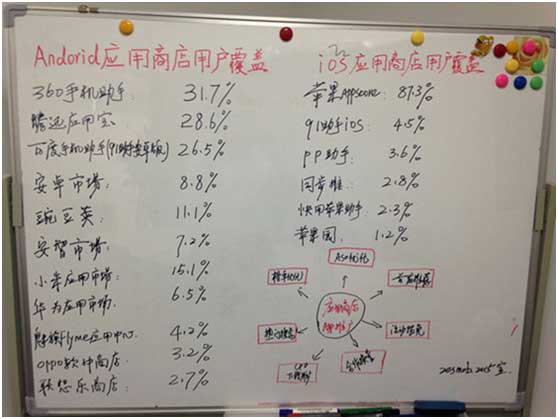 Andorid应用商店用户覆盖
360手机助手: 31.7%
腾迅应用宝 28.6%
百度手机助手(91助手安卓版) 26.5%
安卓市场: 8.8%
豌豆荚: 11.1%
安智市场: 7.2%
小米应用市场: 15.1%
华为应用市场: 6.5%
魅族flyme应用中心: 4.2%
OPPO软件商店: 3.2%
联想乐商店: 2.7%
iOS应用商店用户覆盖
苹果Appstore: 87.3%
91助手iOS: 4.5%
PP助手: 3.6%
同步推: 2.8%
快用苹果助手: 2.3%
苹果园: 1.2%
ASO优化
应用商店